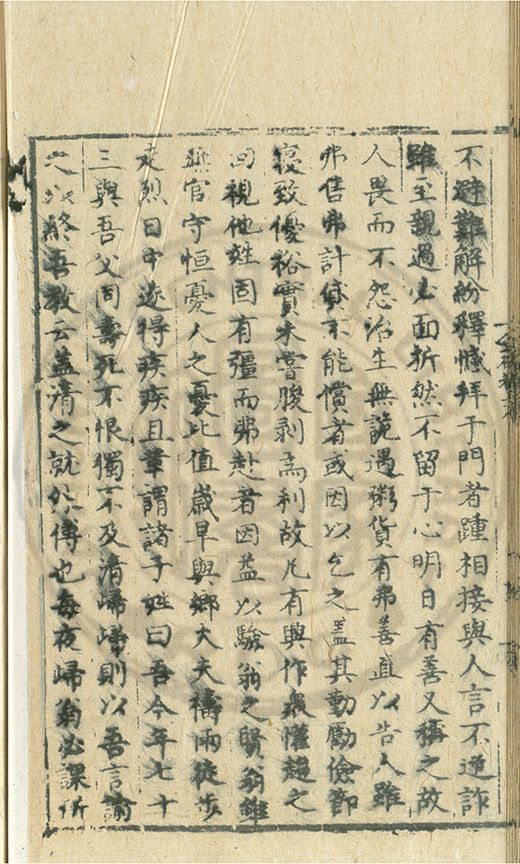 不避難解紛釋憾拜于門者踵相接與人言不逆詐
雖至親過必面折然不留于心明日有善又稱之故
人畏而不怨治生無詭遇鬻貨有弗善直以告人雖
弗售弗計貸不能償者或因以乞之蓋其動勵儉節
寖致優裕實未嘗朘剥為利故凡有興作衆懽趨之
回視他姓固有彊而弗赴者因益以驗翁之賢翁雖
無官守恒憂人之憂比值歲旱與鄉大夫禱雨徒步
走烈日中遂得疾疾且革謂諸子姓曰吾今年七十
三與吾父同壽死不恨獨不及清歸歸則以吾言諭
之以終吾教云蓋清之就外傅也每夜歸翁必課所